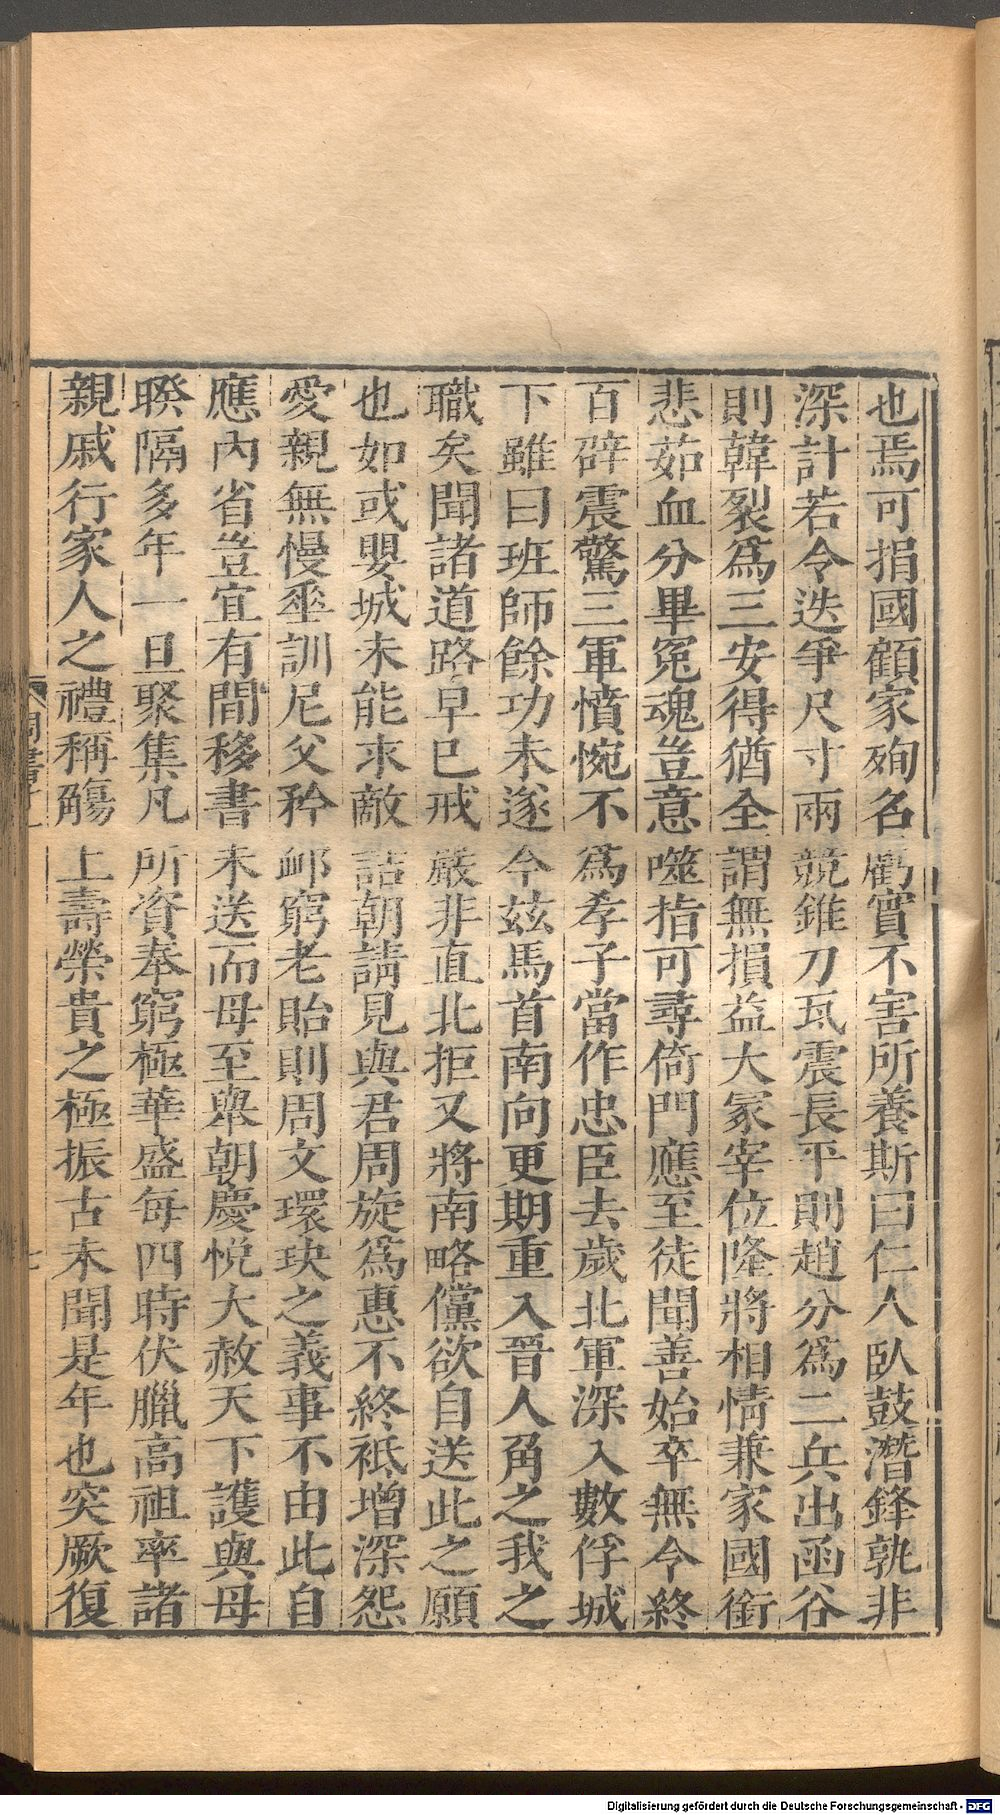 也焉可捐國顧家殉名虧實不害所養斯曰仁人臥鼓潛鋒孰非
深計若令迭爭尺寸兩競錐刀瓦震長平則趙分爲二兵出函谷
則韓裂爲三安得猶全謂無損益大冢宰位隆將相情兼家國銜
悲茹血分畢冤魂豈意噬指可尋倚門應至徒聞善始卒無今終
百辟震驚三軍憤惋不爲孝子當作忠臣去歲北軍深入數俘城
下雖曰班師餘功未遂今茲馬首南向更期重入晉人角之我之
職矣聞諸道路早已戒嚴非直北拒又將南略儻欲自送此之願
也如或嬰城未能求敵詰朝請見與君周旋爲惠不終祗增深怨
愛親無慢垂訓尼父矜䘏窮老貽則周文環玦之義事不由此自
應內省豈宜有間移書未送而母至舉朝慶悅大赦天下護與母
暌隔多年一旦聚集凡所資奉窮極華盛每四時伏臘高祖率諸
親戚行家人之禮稱觴上壽榮貴之極振古未聞是年也突厥復
Digitalisierung gefördert durch die Deutsche Forschungsgemeinschaft - DFG